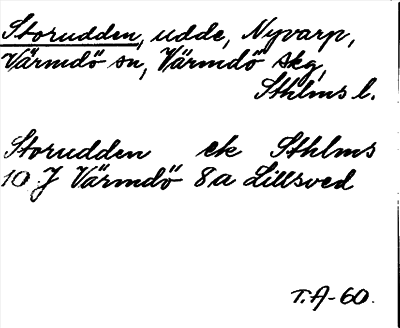 Storudden, udde, Nyvarp,
Värmdö sn, Värmdö skg,
Sthlms l.
Storudden ek Sthlms
10 J Värmdö 8a Lillsved
T.A-60.